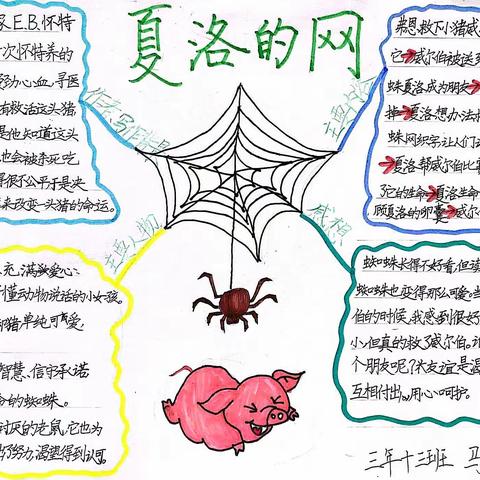 夏洛的网
家E.B.怀特
次怀特养的
劳动心血,寻医
有救活这头猪
是他知道这头
也会被杀死吃
得很不公平于是决
来改变一头猪的命运。
作者写作背景
恩救下小猪威
它→威尔伯被送
蛛夏洛成为朋友→
掉→夏洛想办法
蛛网织字让人们
→夏洛帮威尔伯比赛
了它的生命→夏洛生命
顾夏洛的卵囊→威尔
主要内容
主要人物
充满爱心
懂动物说话的小女孩。
猪单纯可爱,
智慧、信守承诺
的蜘蛛。
讨厌的老鼠,它也为
努力,渴望得到认可。
感想
蜘蛛长得不好看,但读
蜘蛛也变得那么可爱。当
伯的时候,我感到很好
小,但真的救了威尔伯。
个朋友呢?友谊是
互相付出,用心呵护。
三年十三班 马